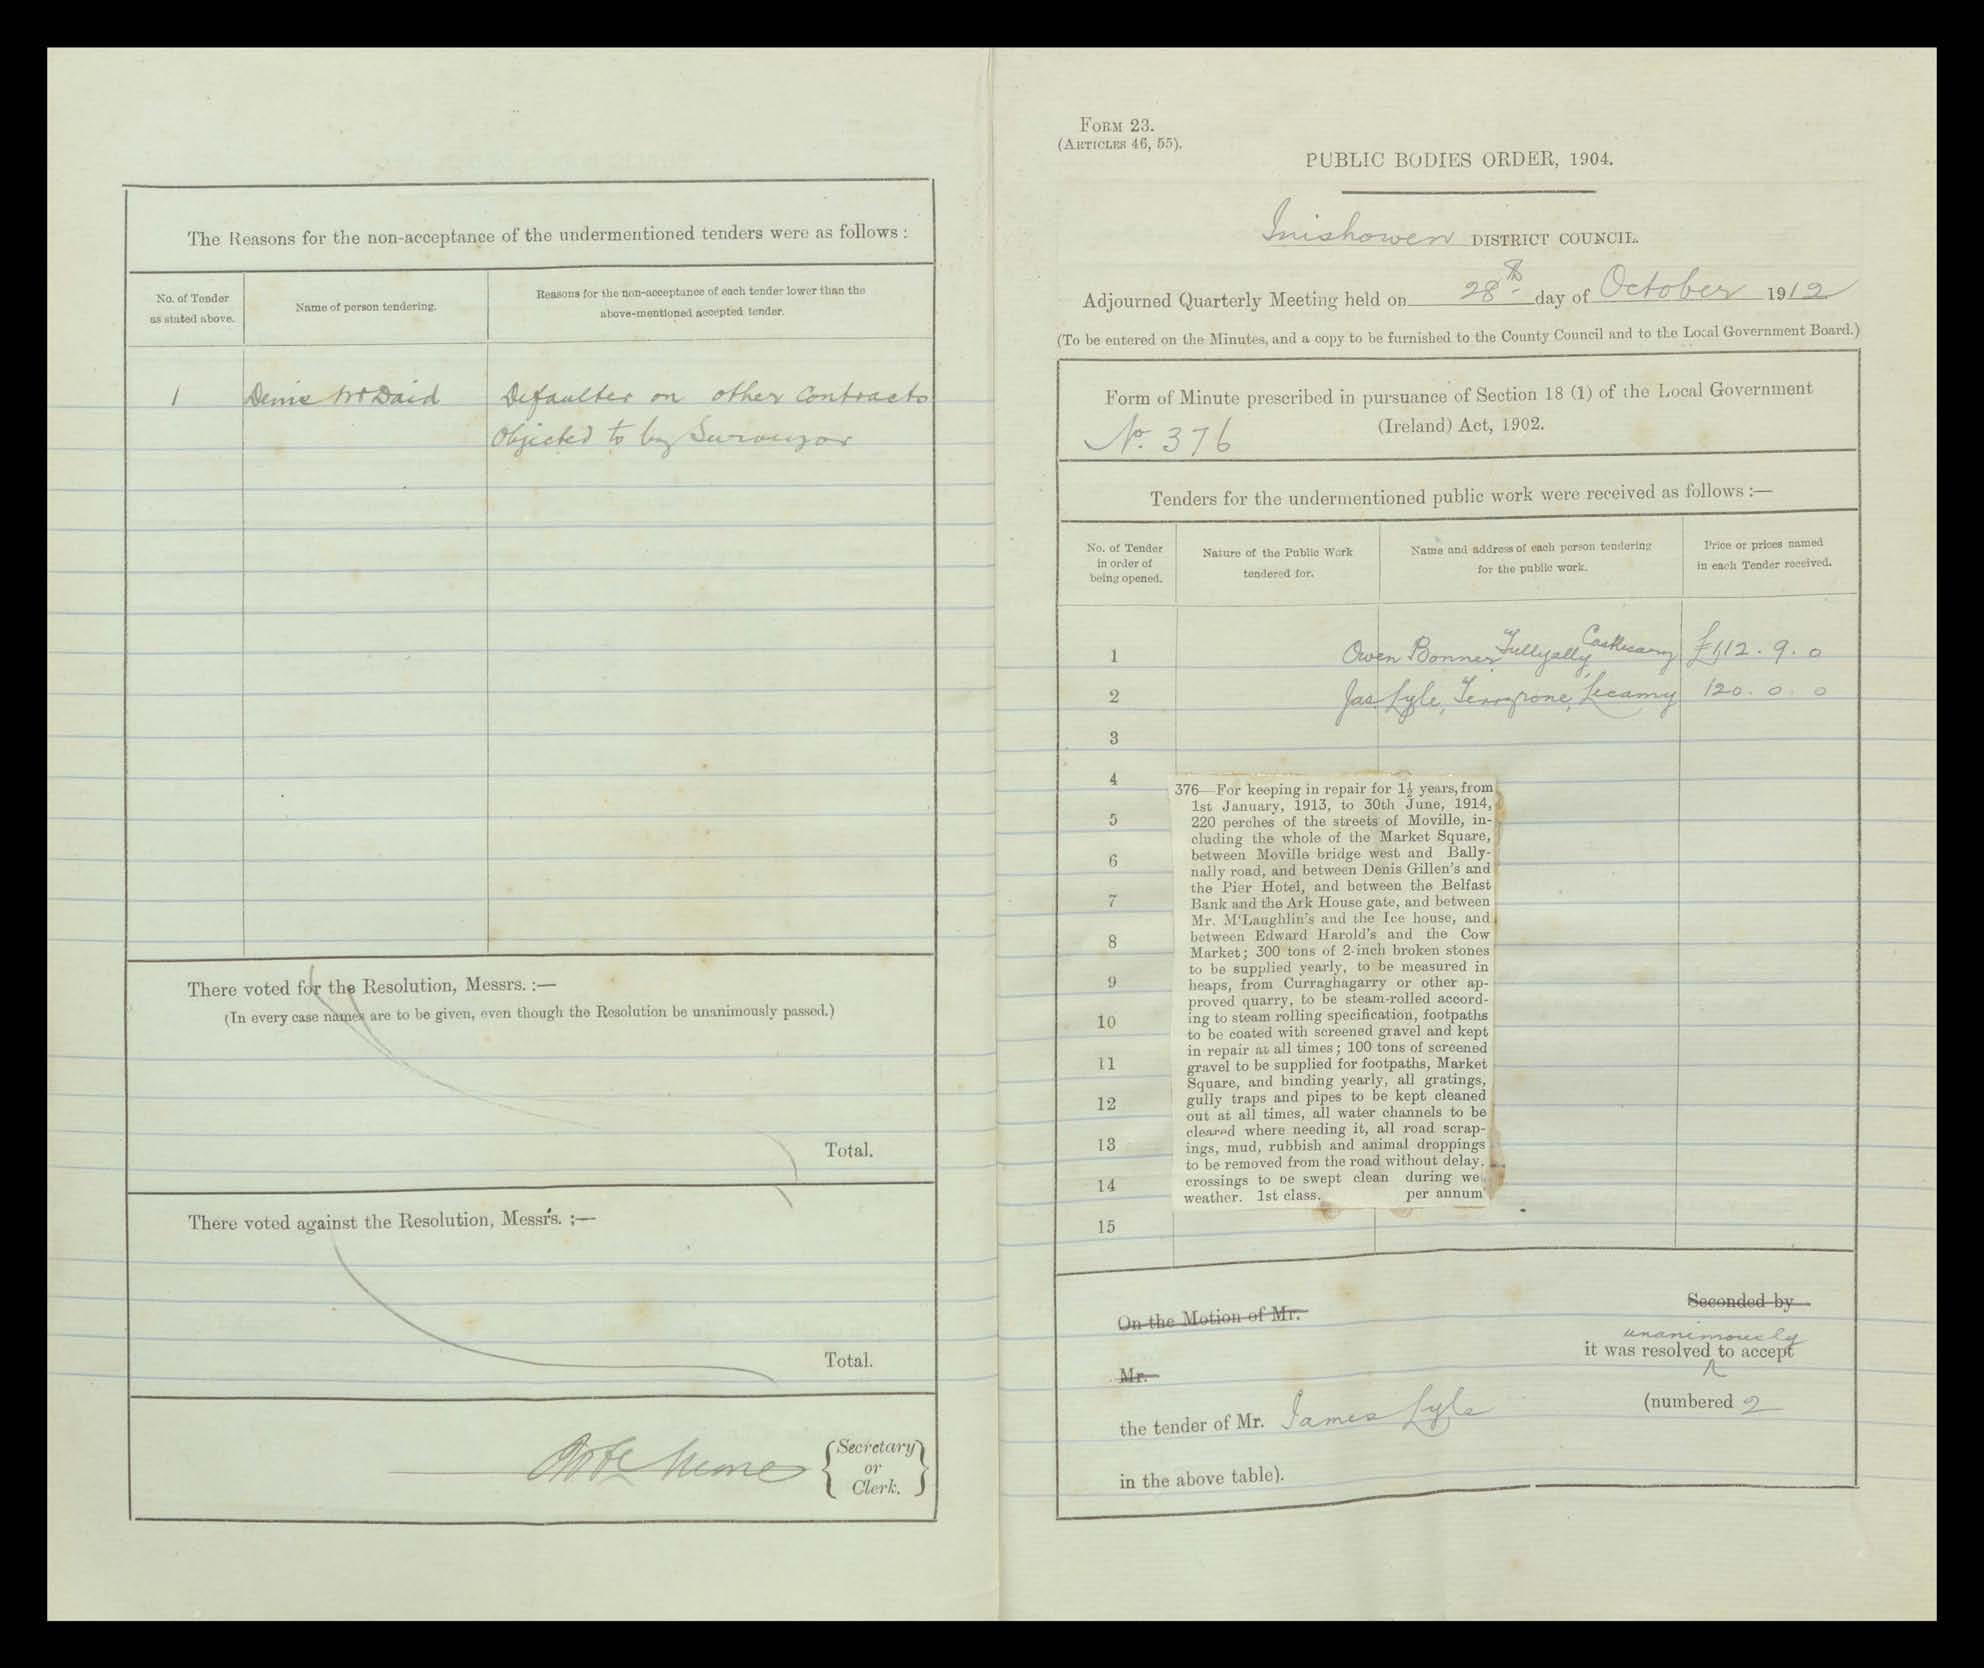 The Reasons for the non-acceptance of the undermentioned tenders were as follows :
No. of Tender
as stated above.
Name of person tendering.
Reasons for the non-acceptance of each tender lower than the
above-mentioned accepted tender.
1 Denis McDaid Defaulter on other Contracts
Objected to by Surveyor
There voted for the Resolution, Messrs. :—
(In every case names are to be given, even though the Resolution be unanimously passed.)
Total.
There voted against the Resolution, Messrs. :—
Total.
Secretary
or
Clerk.
FORM 23.
(ARTICLES 46, 55).
PUBLIC BODIES ORDER, 1904.
Inishowen DISTRICT COUNCIL.
Adjourned Quarterly Meeting held on 28th day of October 1912
(To be entered on the Minutes, and a copy to be furnished to the County Council and to the Local Government Board.)
Form of Minute prescribed in pursuance of Section 18 (1) of the Local Government
(Ireland) Act, 1902.
No. 376
Tenders for the undermentioned public work were received as follows :—
No. of Tender
in order of
being opened.
Nature of the Public Work
tendered for.
Name and address of each person tendering
for the public work.
Price or prices named
in each Tender received.
1 Owen Bonner Tullyally Castlecary £112. 9. 0
2 Jas. Lyle, Lecamy 120. 0. 0
3
4
5
6
7
8
9
10
11
12
13
14
15
376—For keeping in repair for 1½ years, from
1st January, 1913, to 30th June, 1914,
220 perches of the streets of Moville, in-
cluding the whole of the Market Square,
between Moville bridge west and Bally-
nally road, and between Denis Gillen's and
the Pier Hotel, and between the Belfast
Bank and the Ark House gate, and between
Mr. M'Laughlin's and the Ice house, and
between Edward Harold's and the Cow
Market; 300 tons of 2-inch broken stones
to be supplied yearly, to be measured in
heaps, from Curraghagarry or other ap-
proved quarry, to be steam-rolled accord-
ing to steam rolling specification, footpaths
to be coated with screened gravel and kept
in repair at all times; 100 tons of screened
gravel to be supplied for footpaths, Market
Square, and binding yearly, all gratings,
gully traps and pipes to be kept cleaned
out at all times, all water channels to be
cleared where needing it, all road scrap-
ings, mud, rubbish and animal droppings
to be removed from the road without delay.
crossings to be swept clean during we
weather. 1st class. per annum
On the Motion of Mr. Seconded by
unanimously
Mr. it was resolved to accept
the tender of Mr. James Lyle (numbered 2
in the above table).